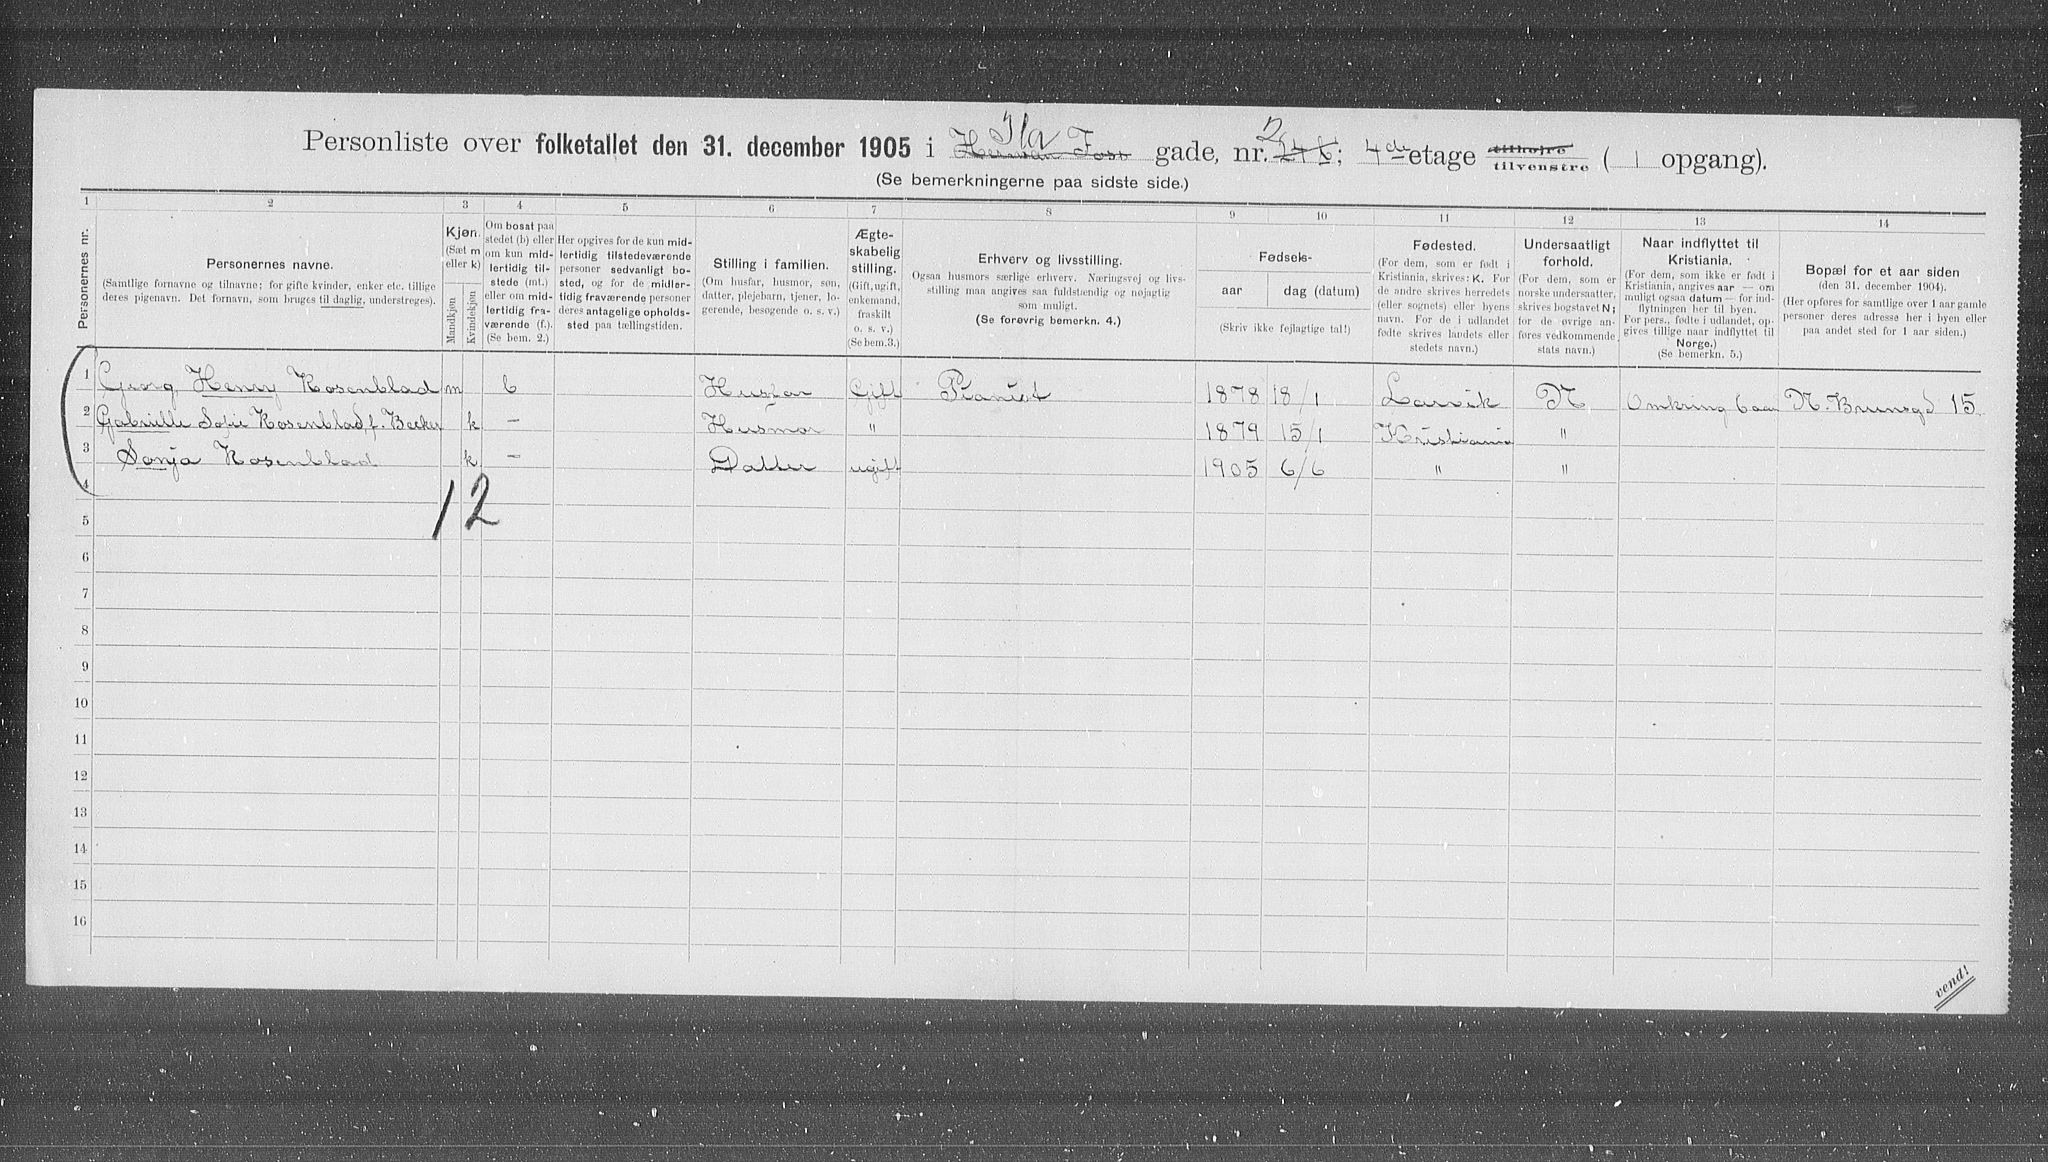 Personliste over folketallet den 31. december 1905 i Herman Foss Ila gade, nr. 2; 4de etage tilhøjre tilvenstre ( 1 opgang).
(Se bemerkningerne paa sidste side.)
1 2 3 4 5 6 7 8 9 10 11 12 13 14
Personernes nr.
Personernes navne.
(Samtlige fornavne og tilnavne; for gifte kvinder, enker etc. tillige
deres pigenavn. Det fornavn, som bruges til daglig, understreges).
Kjøn.
(Sæt m
eller k)
Mandkjøn
Kvindekjøn
Om bosat paa
stedet (b) eller
om kun mid-
lertidig til-
stede (mt.)
eller om mid-
lertidig fra-
værende (f.).
(Se bem. 2.)
Her opgives for de kun mid-
lertidig tilstedeværende
personer sedvanligt bo-
sted, og for de midler-
tidig fraværende personer
deres antagelige opholds-
sted paa tællingstiden.
Stilling i familien.
(Om husfar, husmor, søn,
datter, plejebarn, tjener, lo-
gerende, besøgende o. s. v.)
Ægte-
skabelig
stilling.
(Gift, ugift,
enkemand,
fraskilt
o. s. v.)
(Se bem.3.)
Erhverv og livsstilling.
Ogsaa husmors særlige erhverv. Næringsvej og livs-
stilling maa angives saa fuldstændig og nøjagtig
som muligt.
(Se forøvrig bemerkn. 4.)
Fødsels-
aar
dag (datum)
(Skriv ikke fejlagtige tal!)
Fødested.
(For dem, som er født i
Kristiania, skrives: K. For
de andre skrives herredets
(eller sognets) eller byens
navn. For de i udlandet
fødte skrives landets eller
stedets navn.)
Undersaatligt
forhold.
(For dem, som er
norske undersaatter,
skrives bogstavet N;
for de øvrige an-
føres vedkommende
stats navn.)
Naar indflyttet til
Kristiania.
(For dem, som ikke er født i
Kristiania, angives aar — om
muligt ogsaa datum — for ind-
flytningen her til byen.
For pers., fødte i udlandet, op-
gives tillige naar indflyttet til
Norge.)
(Se bemerkn. 5.)
Bopæl for et aar siden
(den 31. december 1904).
(Her opføres for samtlige over 1 aar gamle
personer deres adresse her i byen eller
paa andet sted for 1 aar siden.)
1 Georg Henry Rosenblad m b Husfar Gift Pianist 1878 18/1 Larvik N Omkring 6 aar N. Brunsgd 15
2 Gabrielle Sofie Rosenblad f. Becker k – Husmor " 1879 15/1 Kristiania "
3 Sonja Rosenblad k – Datter ugift 1905 6/6 " "
4
1 2
5
6
7
8
9
10
11
12
13
14
15
16
vend!